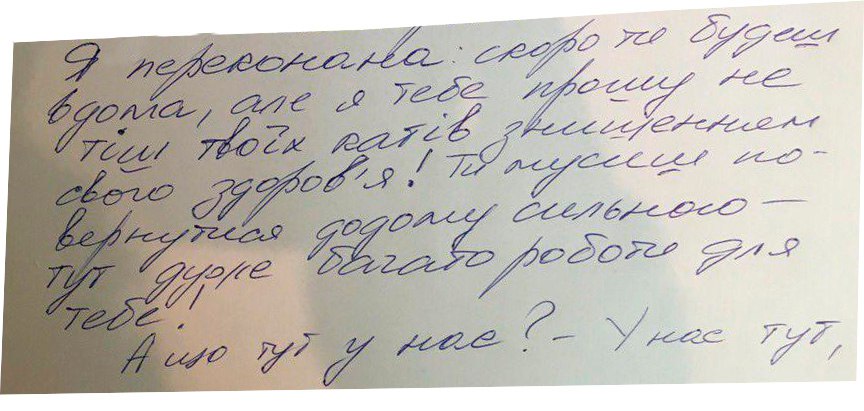 Я переконана: скоро ти будеш
вдома, але я тебе прошу не
тіш твоїх катів знищенням
свого здоров'я! Ти мусиш по-
вернутися додому сильною —
тут дуже багато роботи для
тебе!
А що тут у нас? – У нас тут,